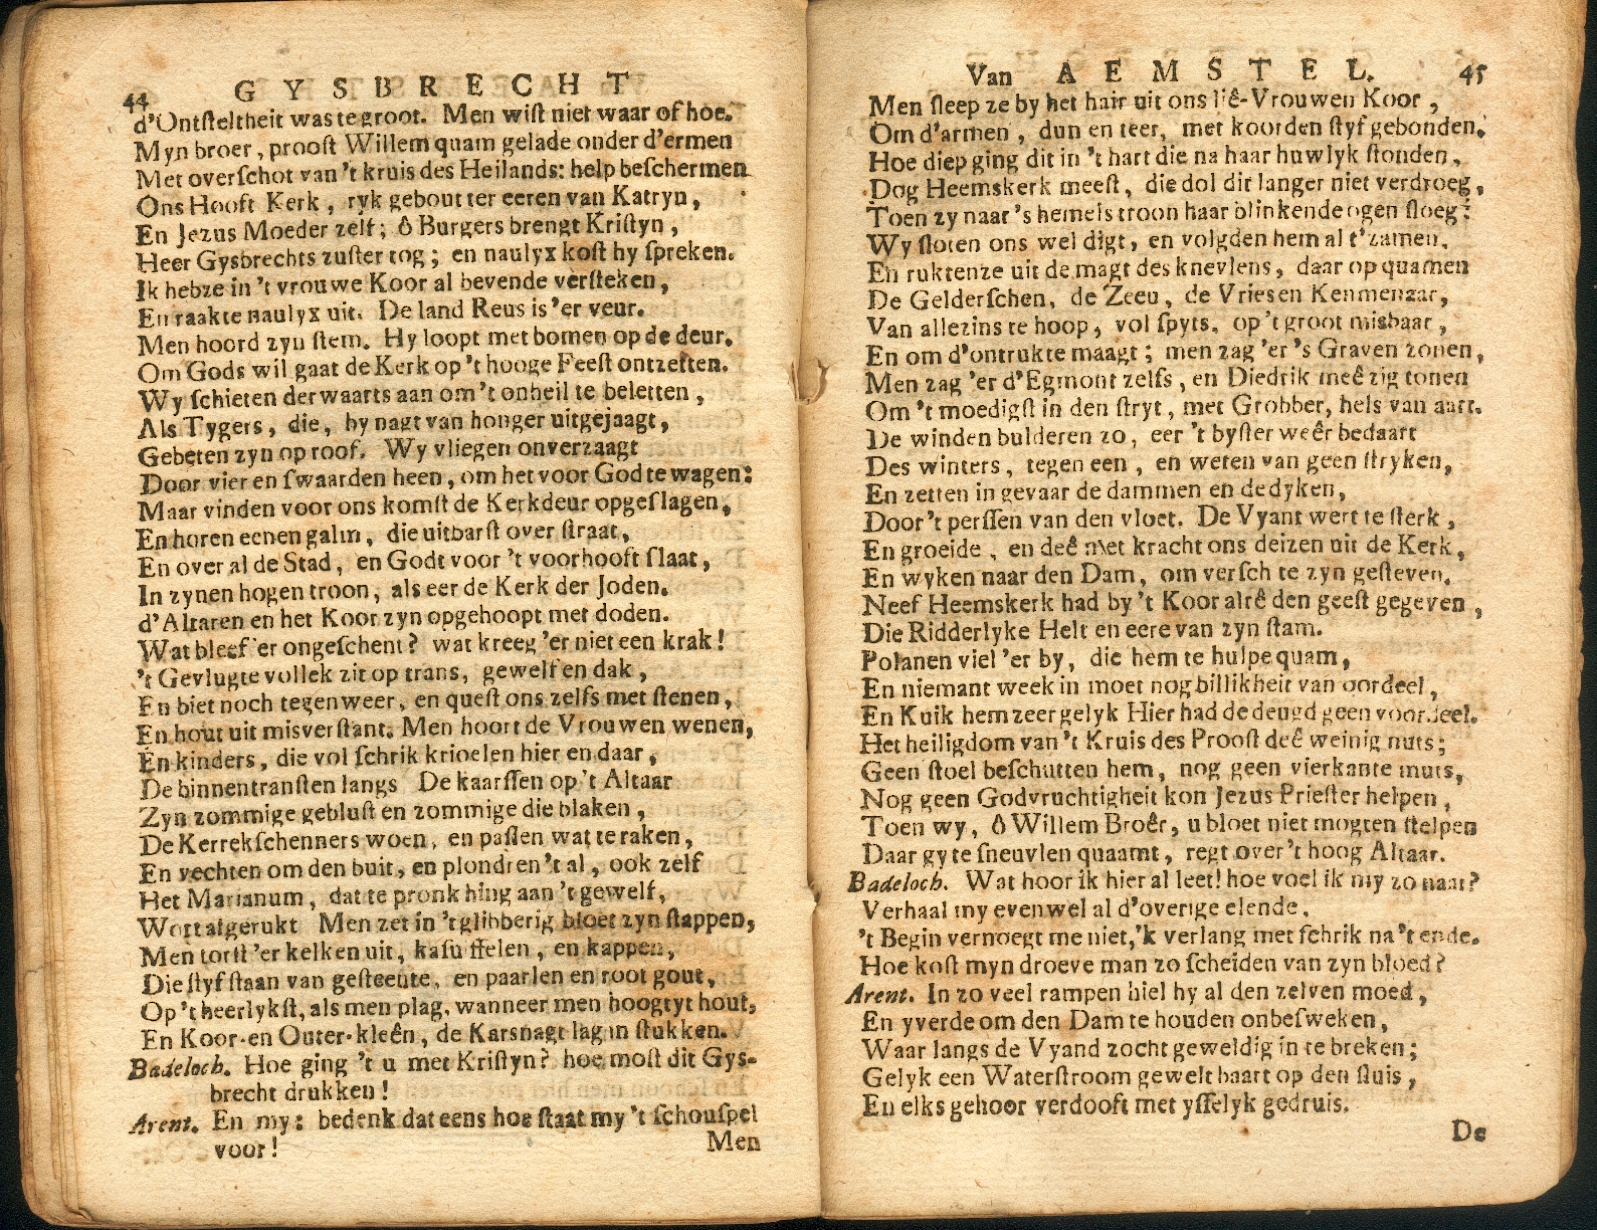 44 GYSBRECHT
d'Ontſteltheit was te groot. Men wiſt niet waar of hoe.
Myn broer, prooſt Willem quam gelade onder d'ermen
Met overſchot van 't kruis des Heilands: help beſchermen
Ons Hooft Kerk, ryk gebout ter eeren van Katryn,
En Jezus Moeder zelf; ô Burgers brengt Kriſtyn,
Heer Gysbrechts zuſter tog; en naulyx koſt hy ſpreken.
Ik heb ze in 't vrouwe Koor al bevende verſteken,
En raakte naulyx uit. De land Reus is 'er veur.
Men hoord zyn ſtem. Hy loopt met bomen op de deur.
Om Gods wil gaat de Kerk op 't hooge Feeſt ontzetten.
Wy ſchieten derwaarts aan om 't onheil te beletten,
Als Tygers, die, by nagt van honger uitgejaagt,
Gebeten zyn op roof. Wy vliegen onverzaagt
Door vier en ſwaarden heen, om het voor God te wagen:
Maar vinden voor ons komſt de Kerkdeur opgeſlagen,
En horen eenen galm, die uitbarſt over ſtraat,
En over al de Stad, en Godt voor 't voorhooft ſlaat,
In zynen hogen troon, als eer de Kerk der Joden.
d'Altaren en het Koor zyn opgehoopt met doden.
Wat bleef 'er ongeſchent? wat kreeg 'er niet een krak!
't Gevlugte vollek zit op trans, gewelf en dak,
En biet noch tegenweer, en queſt ons zelfs met ſtenen,
En hout uit misverſtant. Men hoort de Vrouwen wenen,
En kinders, die vol ſchrik krioelen hier en daar,
De binnentranſten langs De kaarſſen op 't Altaar
Zyn zommige gebluſt en zommige die blaken,
De Kerrekſchenners woen, en paſſen wat te raken,
En vechten om den buit, en plondren 't al, ook zelf
Het Marianum, dat te pronk hing aan 't gewelf,
Wort afgerukt Men zet in 't glibberig bloet zyn ſtappen,
Men torſt 'er kelken uit, kaſuffelen, en kappen,
Die ſtyf ſtaan van geſteente, en paarlen en root gout,
Op 't heerlykſt, als men plag, wanneer men hoogtyt hout,
En Koor-en Outer-kleên, de Karsnagt lag in ſtukken.
Badeloch. Hoe ging 't u met Kriſtyn? hoe moſt dit Gys-
brecht drukken!
Arent. En my: bedenk dat eens hoe ſtaat my 't ſchouſpel
voor!
Men
Van AEMSTEL. 45
Men ſleep ze by het hair uit ons liê-Vrouwen Koor,
Om d'armen, dun en teer, met koorden ſtyf gebonden.
Hoe diep ging dit in 't hart die na haar huwlyk ſtonden,
Dog Heemskerk meeſt, die dol dit langer niet verdroeg,
Toen zy naar 's hemels troon haar blinkende ogen ſloeg:
Wy ſloten ons wel digt, en volgden hem al t'zamen,
En ruktenze uit de magt des knevlens, daar op quamen
De Gelderſchen, de Zeeu, de Vries en Kenmenaar,
Van allezins te hoop, vol ſpyts, op 't groot misbaar,
En om d'ontrukte maagt; men zag 'er 's Graven zonen,
Men zag 'er d'Egmont zelfs, en Diedrik meê zig tonen
Om 't moedigſt in den ſtryt, met Grobber, hels van aart.
De winden bulderen zo, eer 't byſter weêr bedaart
Des winters, tegen een, en weten van geen ſtryken,
En zetten in gevaar de dammen en de dyken,
Door 't perſſen van den vloet. De Vyant wert te ſterk,
En groeide, en deê met kracht ons deizen uit de Kerk,
En wyken naar den Dam, om verſch te zyn geſteven.
Neef Heemskerk had by 't Koor alrê den geeſt gegeven,
Die Ridderlyke Helt en eere van zyn ſtam.
Polanen viel 'er by, die hem te hulpe quam,
En niemant week in moet nog billikheit van oordeel,
En Kuik hem zeer gelyk Hier had de deugd geen voordeel.
Het heiligdom van 't Kruis des Prooſt deê weinig nuts;
Geen ſtoel beſchutten hem, nog geen vierkante muts,
Nog geen Godvruchtigheit kon Jezus Prieſter helpen,
Toen wy, ô Willem Broêr, u bloet niet mogten ſtelpen
Daar gy te ſneuvlen quaamt, regt over 't hoog Altaar.
Badeloch. Wat hoor ik hier al leet! hoe voel ik my zo naar?
Verhaal my evenwel al d'overige elende.
't Begin vernoegt me niet, 'k verlang met ſchrik na 't ende.
Hoe koſt myn droeve man zo ſcheiden van zyn bloed?
Arent. In zo veel rampen hiel hy al den zelven moed,
En yverde om den Dam te houden onbeſweken,
Waar langs de Vyand zocht geweldig in te breken;
Gelyk een Waterſtroom gewelt baart op den ſluis,
En elks gehoor verdooft met yſſelyk gedruis.
De